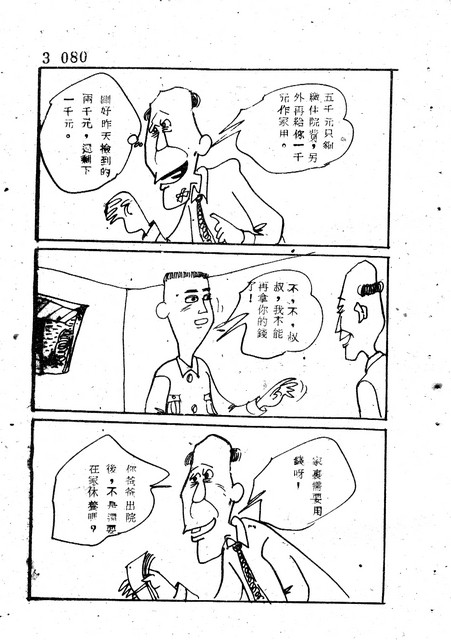 3 080
五千元只夠
繳住院費，另
外再給你一千
元作家用。
剛好昨天撿到的
兩千元，還剩下
一千元。
不，不，叔
叔，我不能
再拿你的錢
了！
家裏需要用
錢呀！
你爸爸出院
後，不是還要
在家休養嗎？